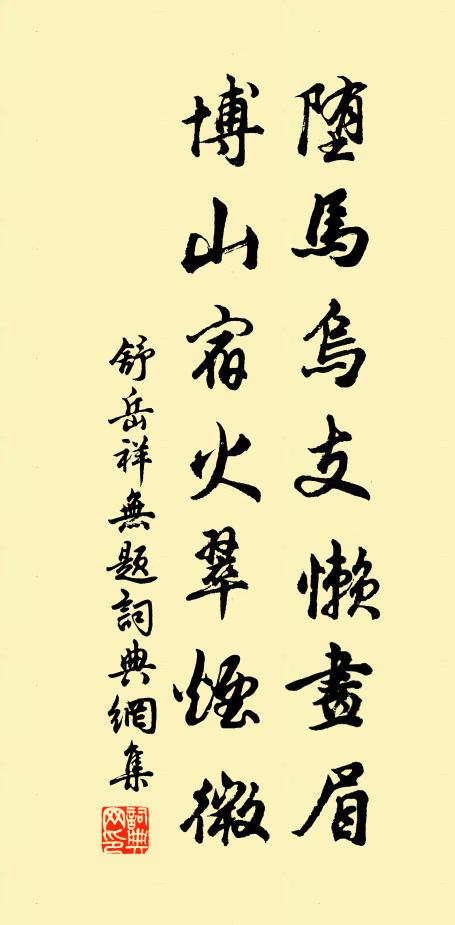 堕馬烏支懶畫眉
博山宿火翠煙微
舒岳祥無題詞典網集
詞典网印